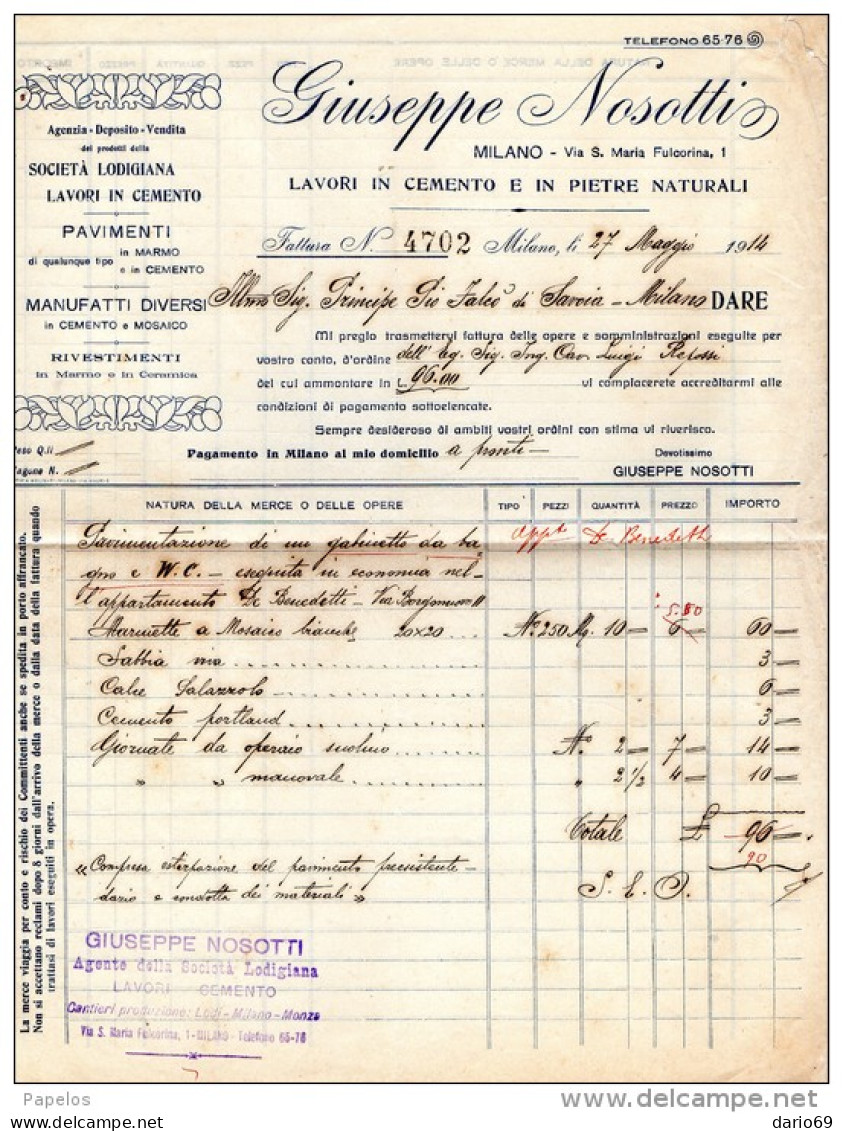 TELEFONO 65-76
Giuseppe Nosotti
MILANO - Via S. Maria Fulcorina, 1
LAVORI IN CEMENTO E IN PIETRE NATURALI
Agenzia - Deposito - Vendita
dei prodotti della
SOCIETÀ LODIGIANA
LAVORI IN CEMENTO
PAVIMENTI
di qualunque tipo in MARMO
e in CEMENTO
MANUFATTI DIVERSI
in CEMENTO e MOSAICO
RIVESTIMENTI
in Marmo e in Ceramica
Fattura N. 4702 Milano, li 27 Maggio 1914
Illmo Sig. Principe Pio Falcò di Savoia - Milano DARE
Mi pregio trasmettervi fattura delle opere e somministrazioni eseguite per
vostro conto, d'ordine dell' Eg. Sig. Ing. Cav. Luigi Repossi
del cui ammontare in L. 96.00 vi complacerete accreditarmi alle
condizioni di pagamento sottoelencate.
Sempre desideroso di ambiti vostri ordini con stima vi riverisco.
Peso Q.li
Vagone N.
Pagamento in Milano al mio domicilio a pronti -
Devotissimo
GIUSEPPE NOSOTTI
NATURA DELLA MERCE O DELLE OPERE TIPO PEZZI QUANTITÀ PREZZO IMPORTO
Appt De Benedetti
Pavimentazione di un gabinetto da ba
gno e W.C. - eseguita in economia nel-
l'appartamento De Benedetti - Via 11
5.50
Marmette a Mosaico bianche 20x20 ... No 250 Mq. 10 - 6 - 60 -
Sabbia viva 3 -
Calce Palazzolo 6 -
Cemento portland 3 -
Giornate da operaio N.o 2 - 7 - 14 -
" " manovale " 2 1/2 4 - 10 -
Totale £ 96 -
90
"Compresa estirpazione del pavimento preesistente -
dazio e condotta dei materiali"
S. E. O.
GIUSEPPE NOSOTTI
Agente della Società Lodigiana
LAVORI CEMENTO
Cantieri produzione: Lodi - Milano - Monza
Via S. Maria Fulcorina, 1 - MILANO - Telefono 65-76
La merce viaggia per conto e rischio dei Committenti anche se spedita in porto affrancato.
Non si accettano reclami dopo 8 giorni dall'arrivo della merce o dalla data della fattura quando
trattasi di lavori eseguiti in opera.
Papelos
delcampe.net
dario69